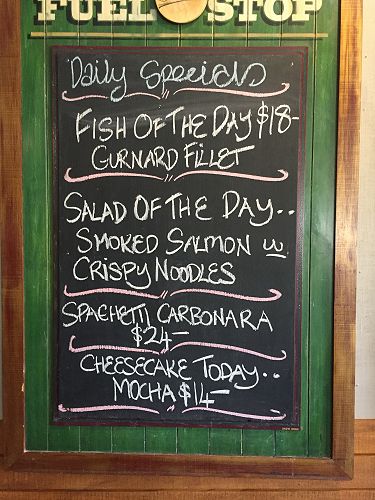 FUEL STOP
Daily Specials
FISH OF THE DAY $18-
GURNARD FILLET
SALAD OF THE DAY..
SMOKED SALMON w
CRISPY NOODLES
SPAGHETTI CARBONARA
$24-
CHEESECAKE TODAY..
MOCHA $14-